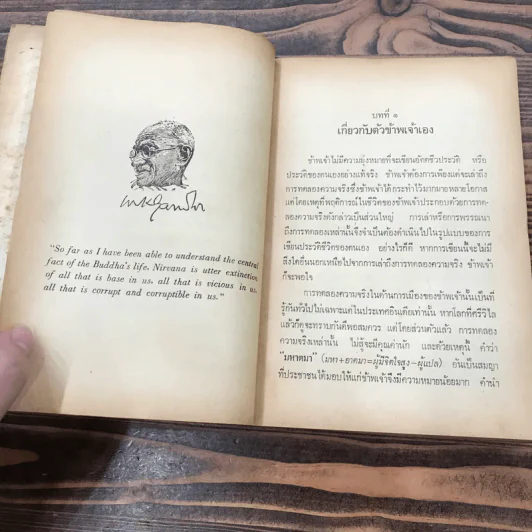 "So far as I have been able to understand the central
fact of the Buddha's life. Nirvana is utter extinction
of all that is base in us, all that is vicious in us,
all that is corrupt and corruptible in us."
บทที่ ๑
เกี่ยวกับตัวข้าพเจ้าเอง
ข้าพเจ้าไม่มีความมุ่งหมายที่จะเขียนอัตตชีวประวัติ หรือ
ประวัติของตนเองอย่างแท้จริง ข้าพเจ้าต้องการเพียงแต่จะเล่าถึง
การทดลองความจริงซึ่งข้าพเจ้าได้กระทำไว้มากมายหลายโอกาส
แต่โดยเหตุที่พฤติการณ์ในชีวิตของข้าพเจ้าประกอบด้วยการทด-
ลองความจริงดังกล่าวเป็นส่วนใหญ่ การเล่าหรือการพรรณนา
ถึงการทดลองเหล่านั้นจึงจำเป็นต้องดำเนินไปในรูปแบบของการ
เขียนประวัติชีวิตของตนเอง อย่างไรก็ดี หากการเขียนนี้จะไม่มี
สิ่งใดอื่นนอกเหนือไปจากการเล่าถึงการทดลองความจริง ข้าพเจ้า
ก็จะพอใจ
การทดลองความจริงในด้านการเมืองของข้าพเจ้านั้นเป็นที่
รู้กันทั่วไปไม่เฉพาะแต่ในประเทศอินเดียเท่านั้น หากโลกที่ศรีวิไล
แล้วก็ดูจะทราบกันดีพอสมควร แต่โดยส่วนตัวแล้ว การทดลอง
ความจริงเหล่านั้น ไม่สู้จะมีคุณค่านัก และด้วยเหตุนี้ คำว่า
"มหาตมา" (มหา+อาตมา=ผู้มีจิตใจสูง-ผู้แปล) อันเป็นสมญา
ที่ประชาชนได้มอบให้แก่ข้าพเจ้าจึงมีความหมายน้อยมาก คำนำ